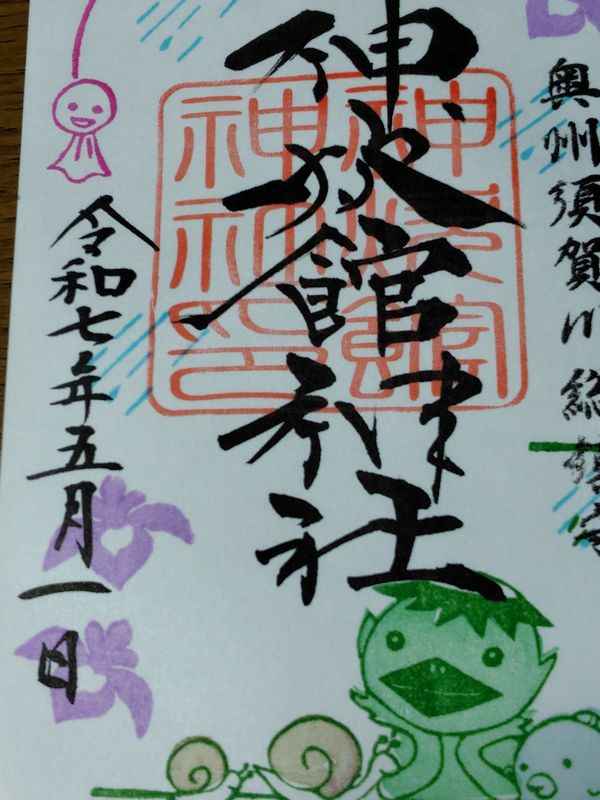 奥州須賀川総鎮守
神炊館神社
神炊館
神社印
令和七年五月一日